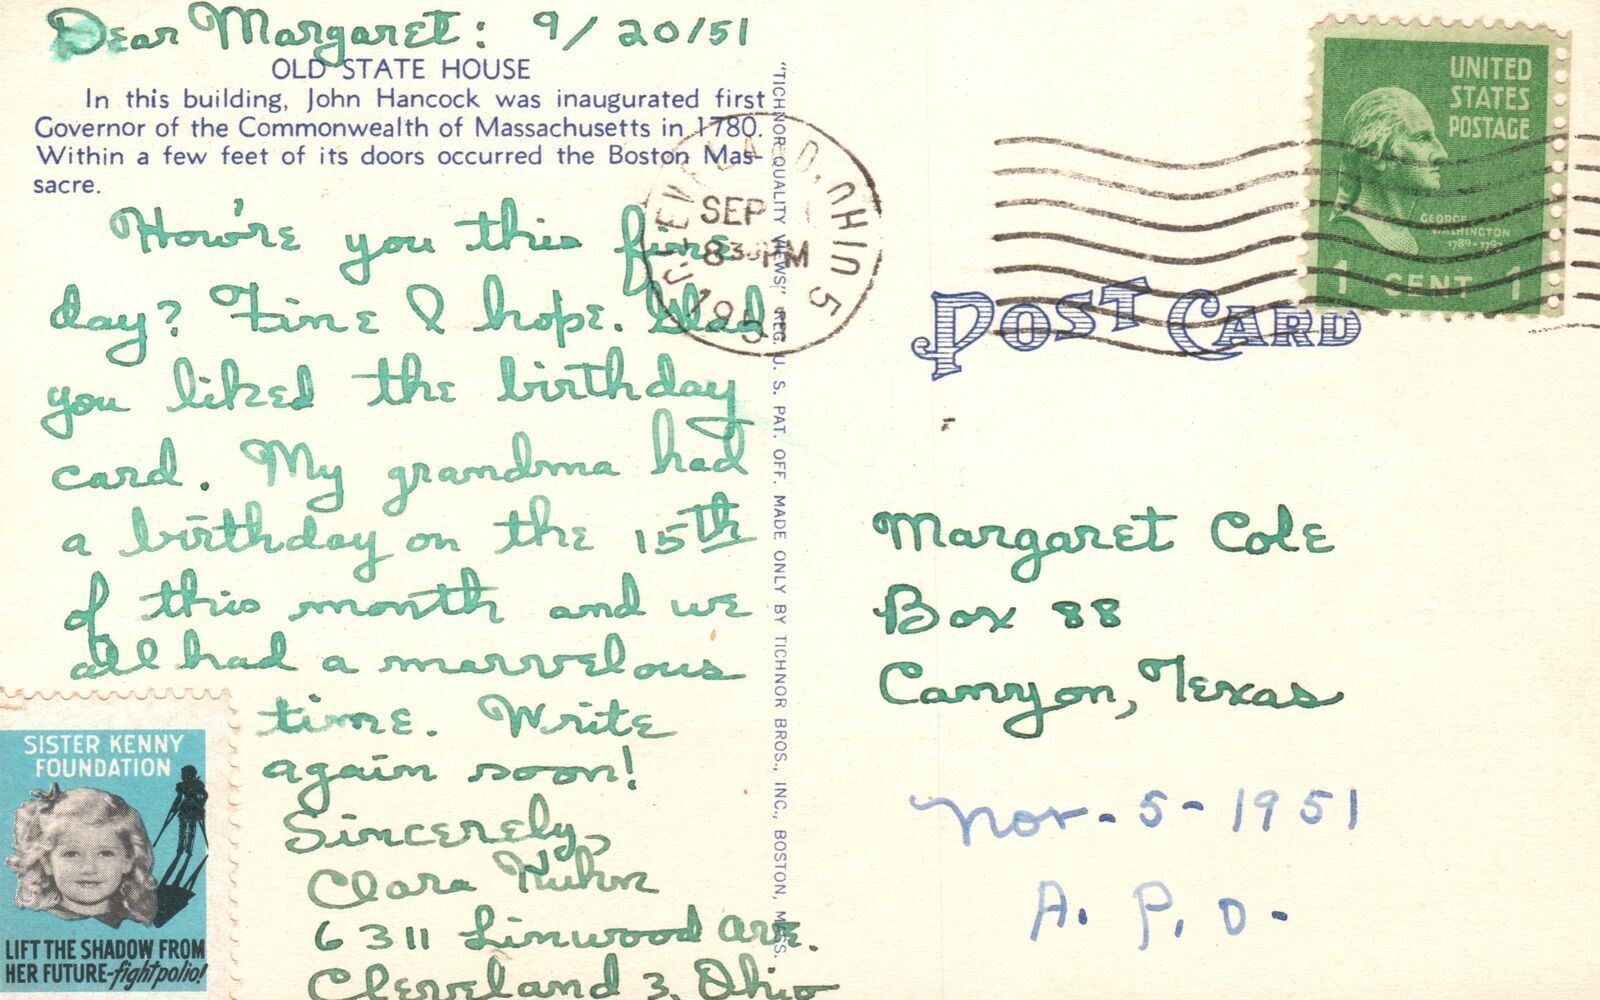 Dear Margaret: 9/20/51
OLD STATE HOUSE
In this building, John Hancock was inaugurated first
Governor of the Commonwealth of Massachusetts in 1780.
Within a few feet of its doors occurred the Boston Mas-
sacre.
How're you this fine
day? Fine I hope. Glad
you liked the birthday
card. My grandma had
a birthday on the 15th
of this month and we
all had a marvelous
time. Write
again soon!
Sincerely,
Clara Kuhn
6311 Linwood Ave.
Cleveland 3, Ohio
SISTER KENNY
FOUNDATION
LIFT THE SHADOW FROM
HER FUTURE-fight polio!
"TICHNOR QUALITY VIEWS" REG. U. S. PAT. OFF. MADE ONLY BY TICHNOR BROS., INC., BOSTON, MASS.
CLEVELAND, OHIO 5
SEP
8 30 PM
1951
UNITED
STATES
POSTAGE
GEORGE
WASHINGTON
1789-1797
1 CENT 1
POST CARD
Margaret Cole
Box 88
Canyon, Texas
Nov. - 5 - 1951
A. P. O-